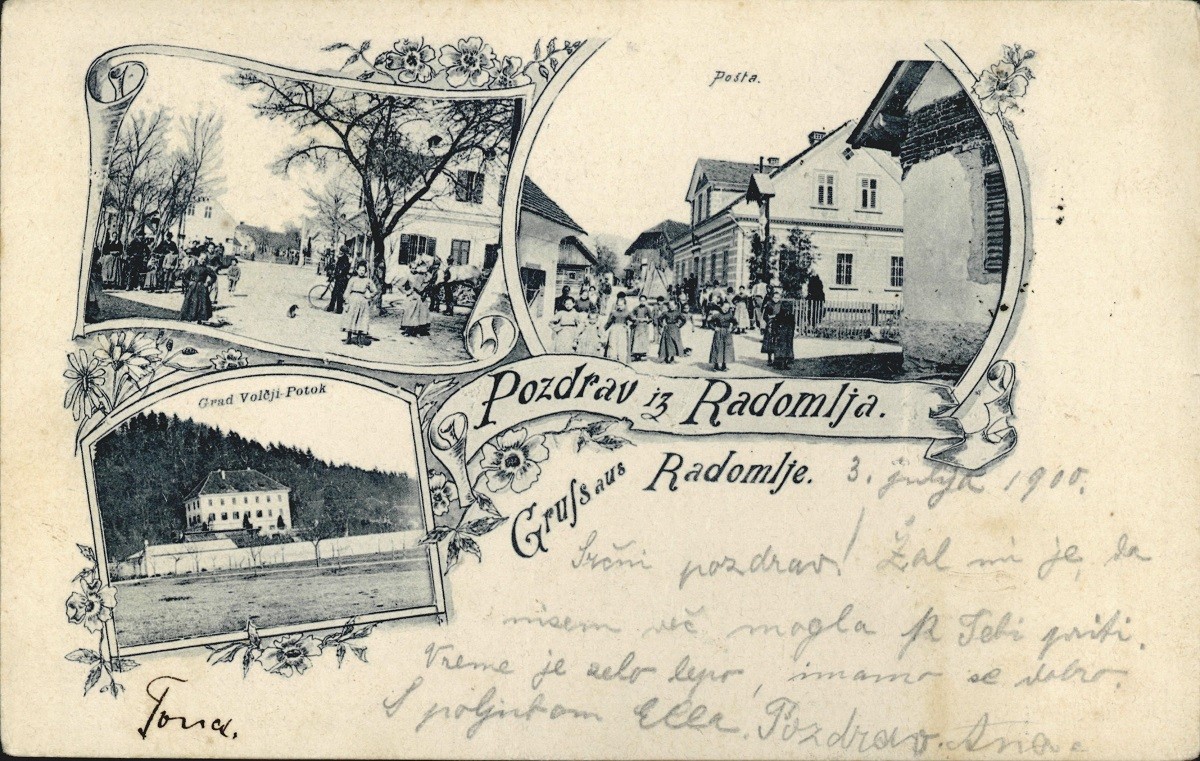 Pošta.
Grad Volčji-Potok
Pozdrav iz Radomlja.
Gruſs aus Radomlje.
3. julija 1900.
Srčni pozdrav! Žal mi je, da
nisem več mogla k Tebi priti.
Vreme je zelo lepo, imamo se dobro.
S poljubom Ella. Pozdrav.
Tona.